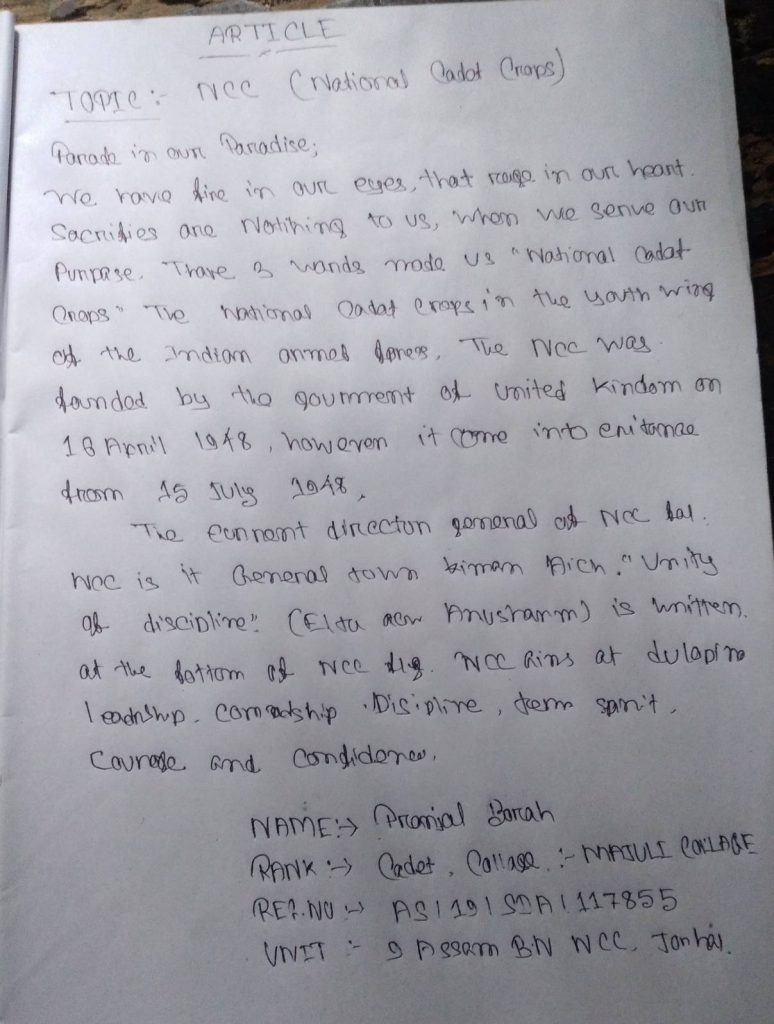 ARTICLE
TOPIC :- NCC (National Cadot Crops)
Parade in our Paradise;
We have fire in our eyes, that range in our heart.
Sacrifies are Nothing to us, when we serve our
Purpose. Thare 3 wards made us "National Cadat
Crops" The National Cadat crops in the youth wing
of the Indian armes forces, The NCC was
founded by the gourment of united Kindom on
16 April 1948, however it come into
from 15 July 1948,
The current director general of NCC
NCC is it General "Unity
of discipline" (Ekta is written
at the bottom of NCC NCC Aims at
leadrship. comradship. Disipline, term sparit,
Courage and Confidence,
NAME :→ Pranjal Borah
RANK :→ Cadet, Collage :- MAJULI COLLAGE
REZ. NO :→ AS/19/SDA/117855
UNIT :- 9 Assam BN NCC, Jorhat.